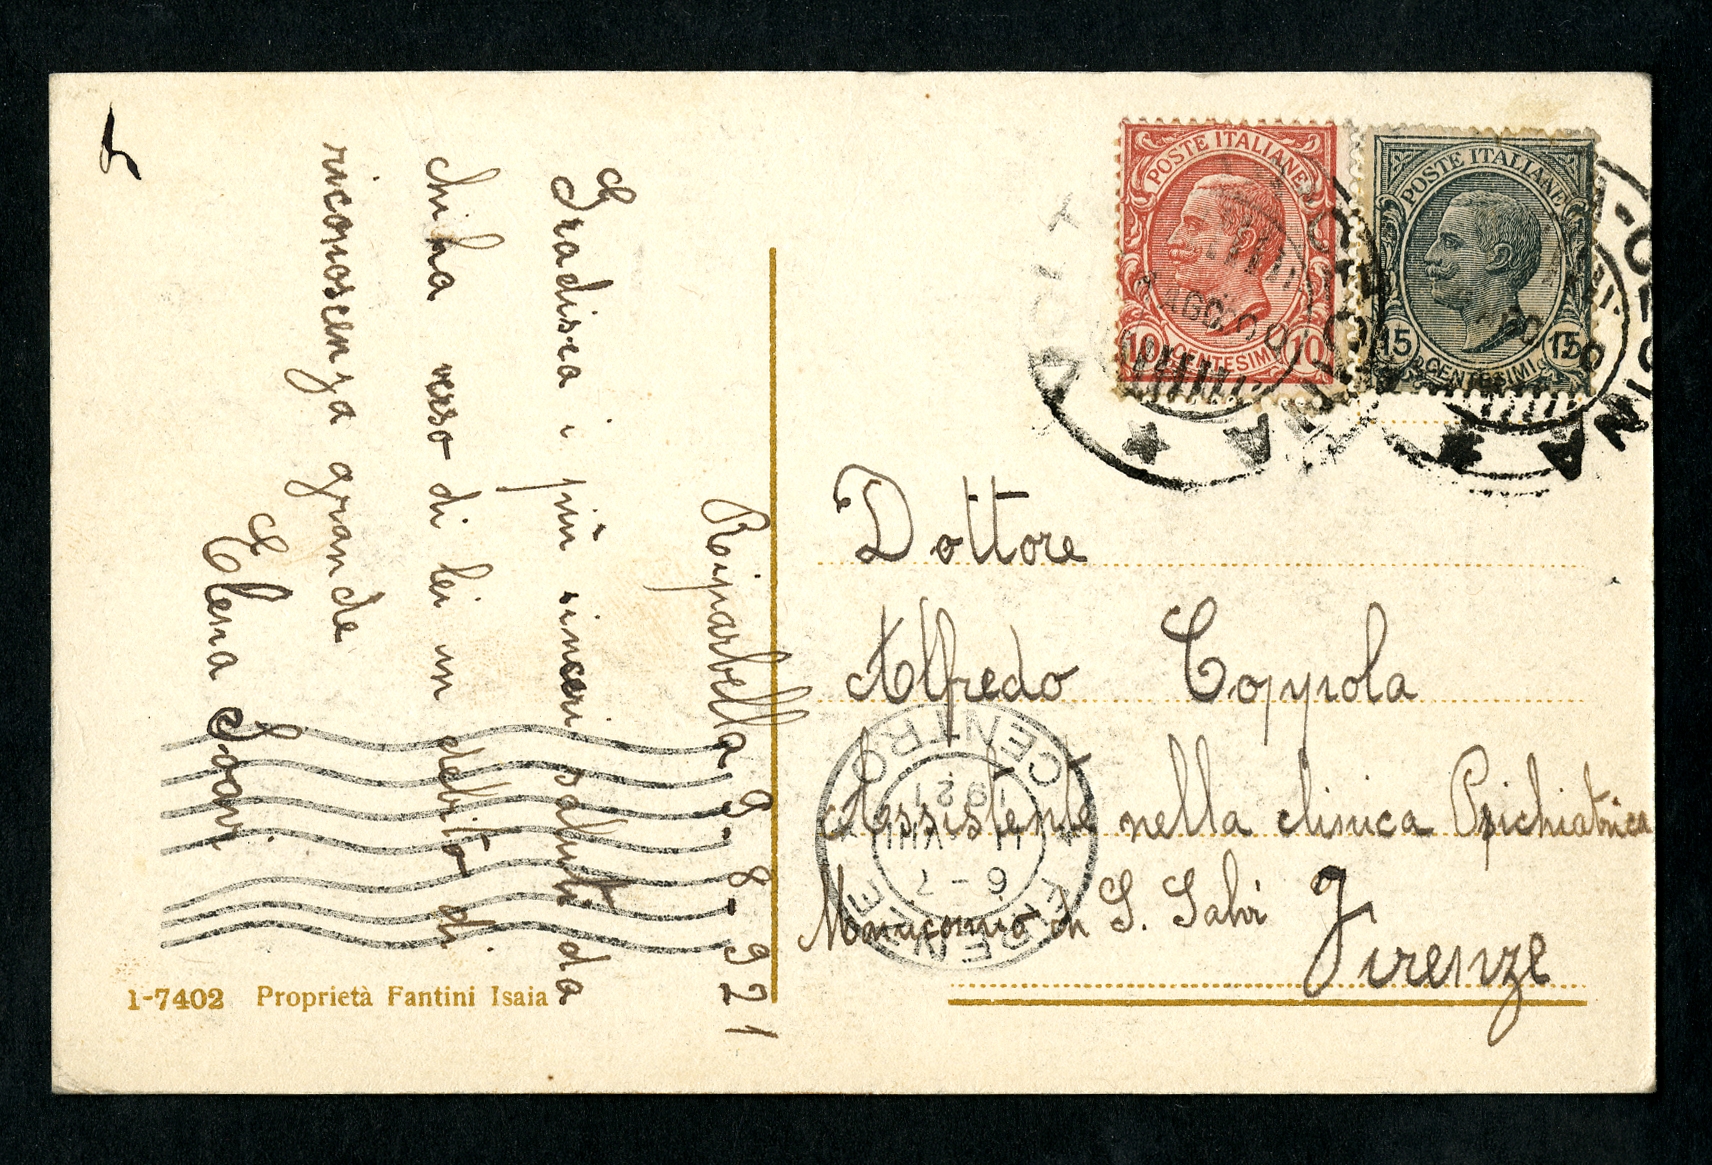 Riparbella 9-8-921
Gradisca i più sinceri saluti da
chi ha verso di lei un debito di
riconoscenza grande
Elena
1-7402 Proprietà Fantini Isaia
POSTE ITALIANE
10 CENTESIMI 10
POSTE ITALIANE
15 CENTESIMI 15
AGO
PISA
Dottore
Alfredo Coppola
Assistente nella clinica Psichiatrica
Manicomio di S. Salvi
Firenze
FIRENZE CENTRO
6-7
11 VIII
1921